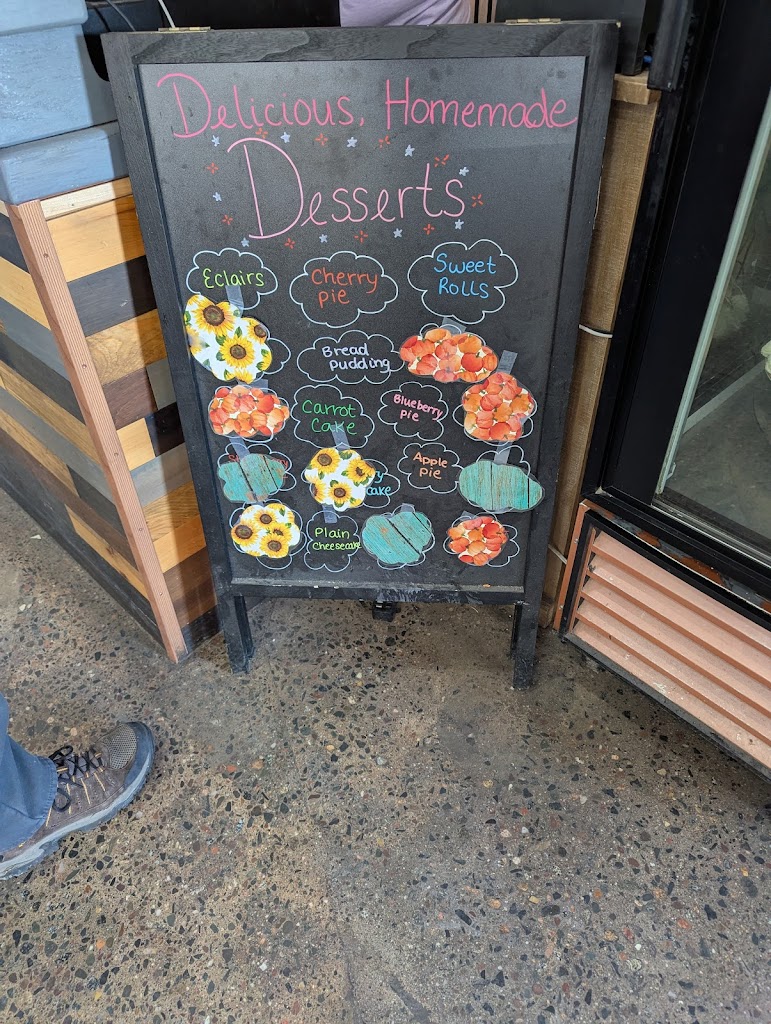 Delicious, Homemade
Desserts
Eclairs
Cherry
Pie
Sweet
Rolls
Bread
Pudding
Carrot
Cake
Blueberry
Pie
Apple
Pie
Cake
Plain
Cheesecake